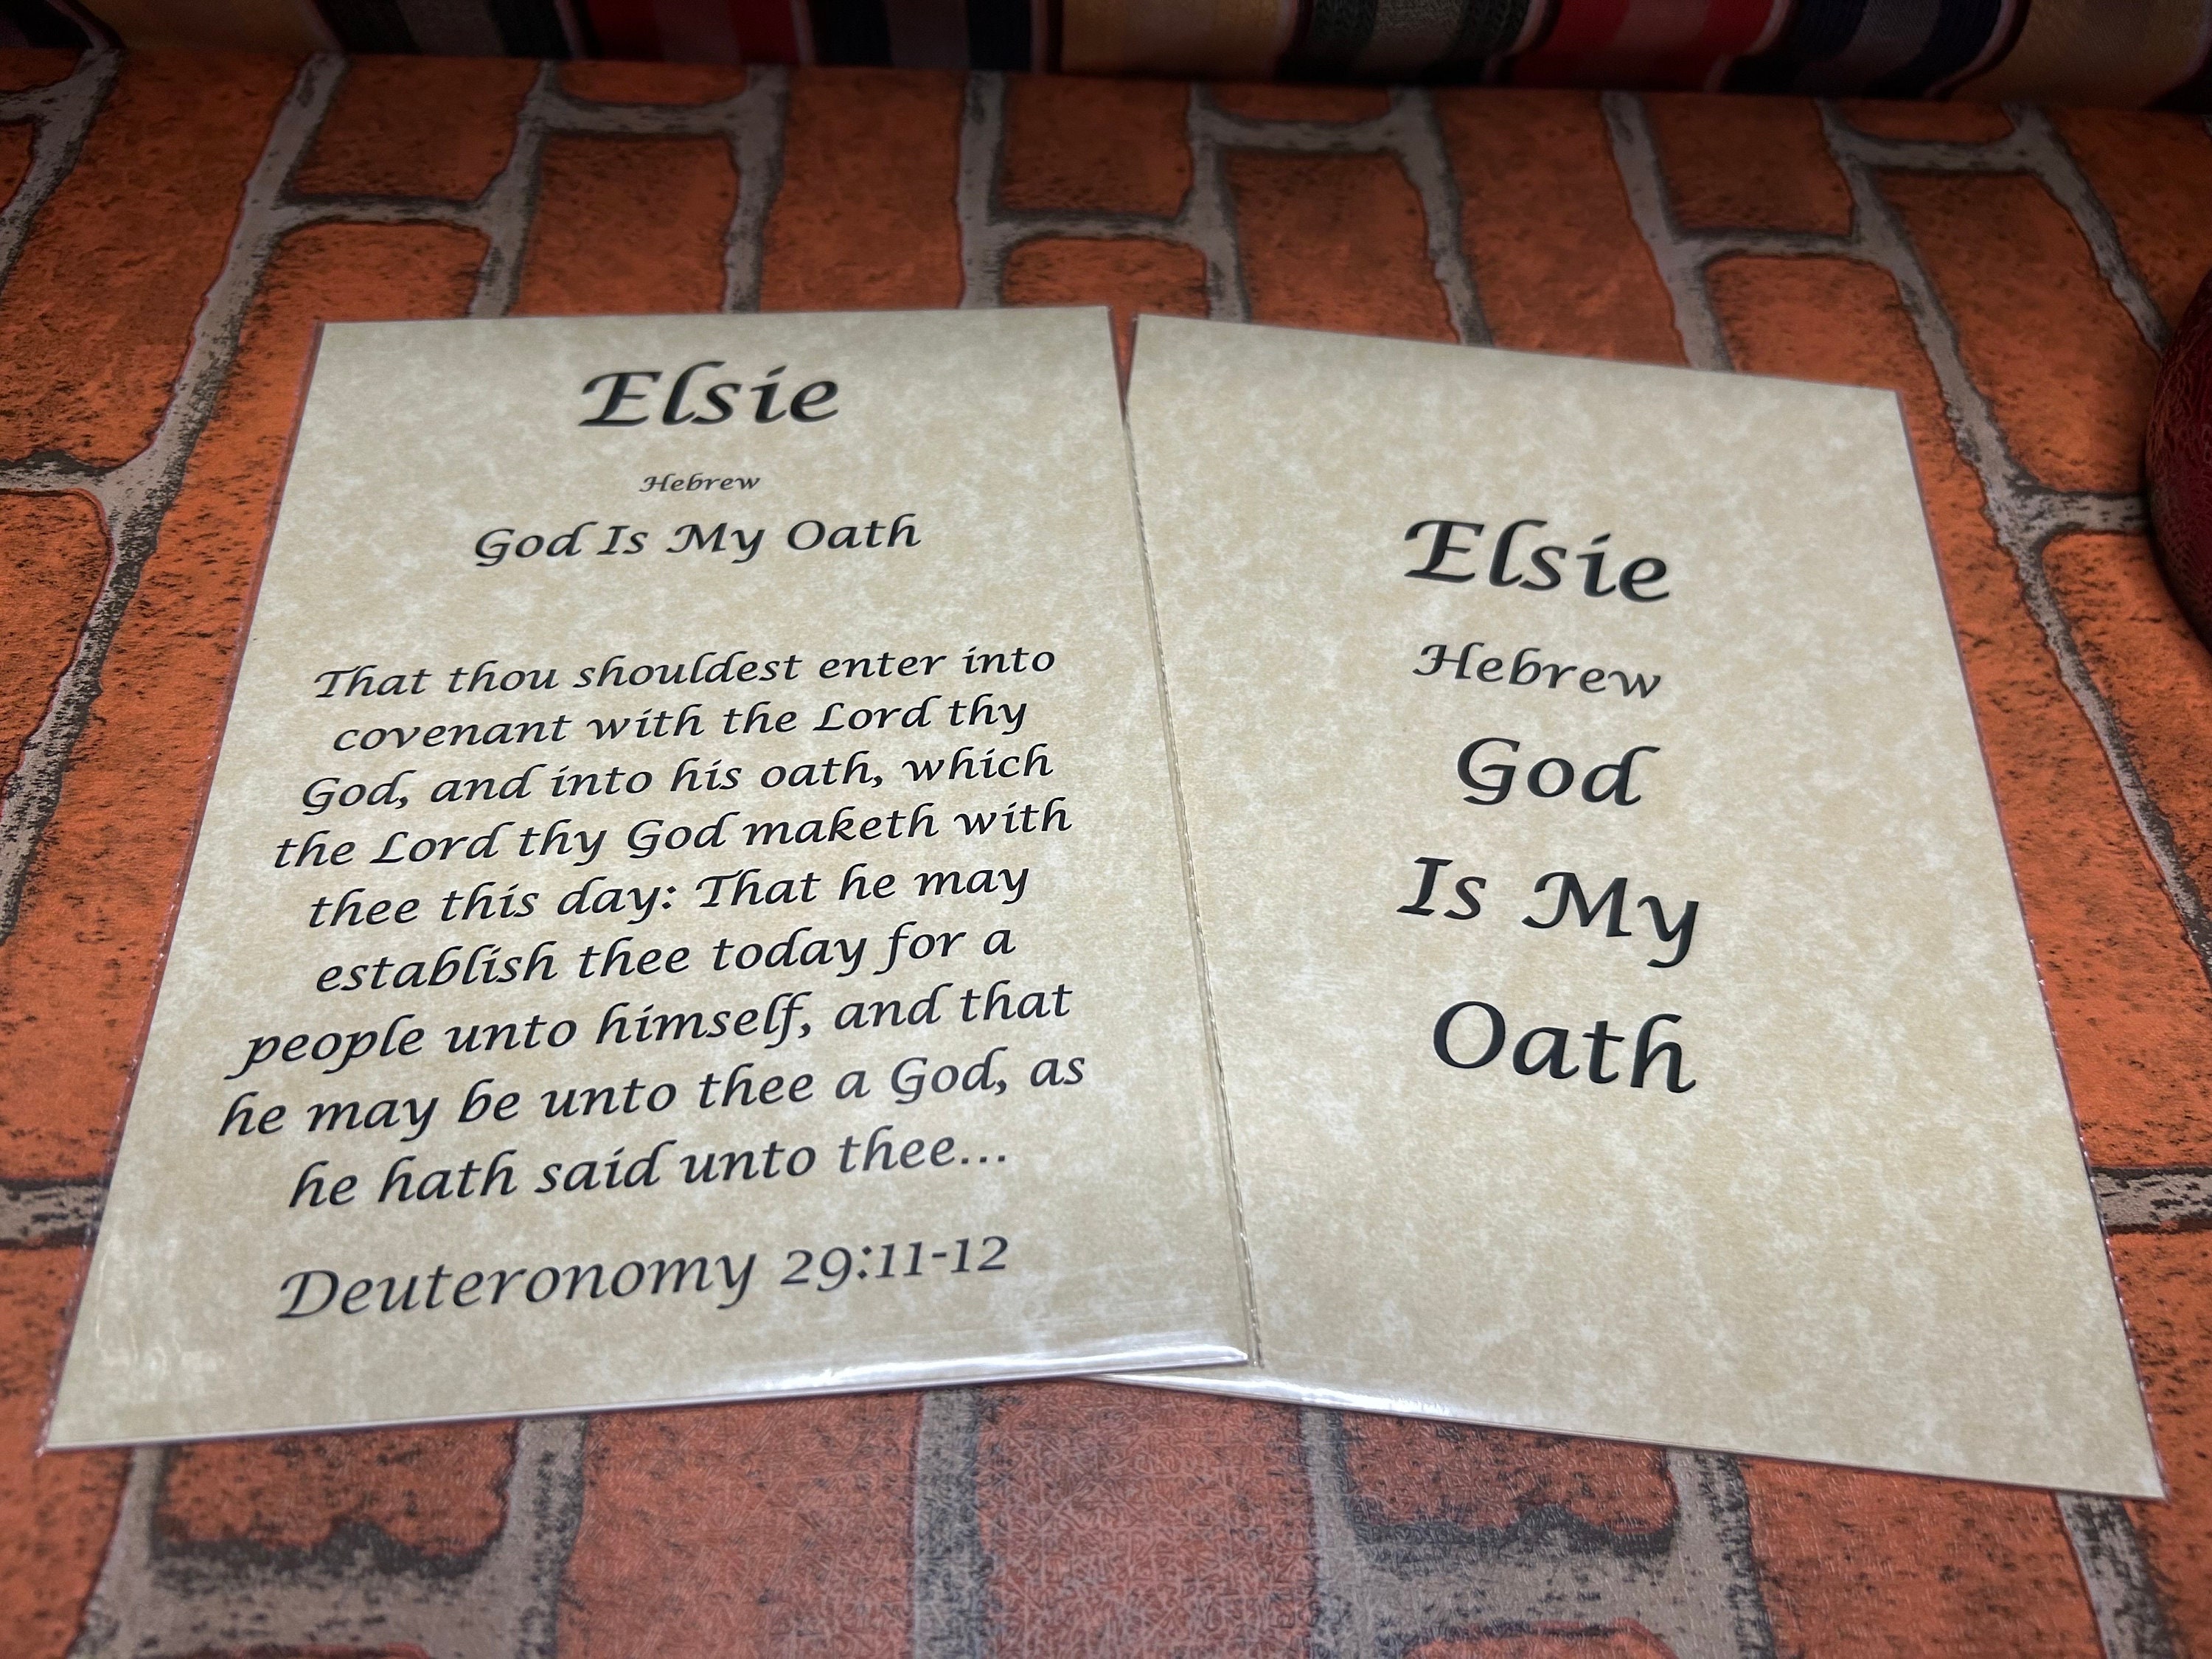 Elsie
Hebrew
God Is My Oath
That thou shouldest enter into
covenant with the Lord thy
God, and into his oath, which
the Lord thy God maketh with
thee this day: That he may
establish thee today for a
people unto himself, and that
he may be unto thee a God, as
he hath said unto thee...
Deuteronomy 29:11-12
Elsie
Hebrew
God
Is My
Oath